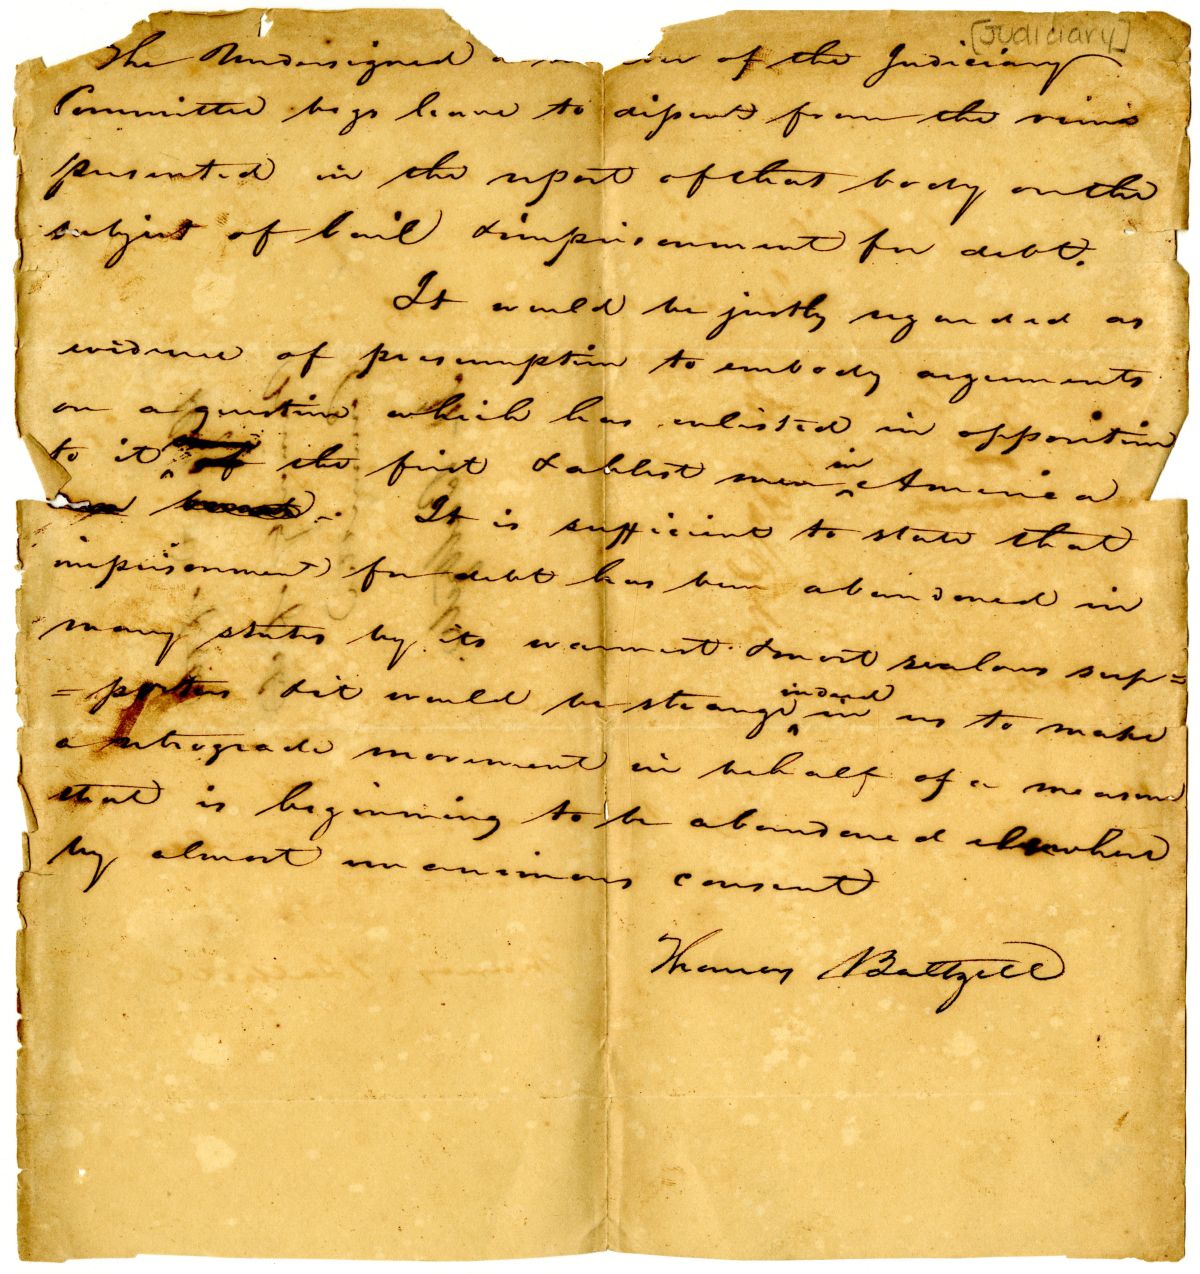 [Judiciary]
The Undersigned a of the Judiciary
Committee begs leave to dissent from the views
presented in the report of that body on the
subject of bail & imprisonment for debt.
It would be justly regarded as
evidence of presumption to embody arguments
on a question which has enlisted in opposition
to it the first & ablest men in America
It is sufficient to state that
imprisonment for debt has been abandoned in
many states by its warmest & most zealous sup=
=porters & it would be strange indeed in us to make
a retrograde movement in behalf of a measure
that is beginning to be abandoned elsewhere
by almost unanimous consent
Thomas Baltzell